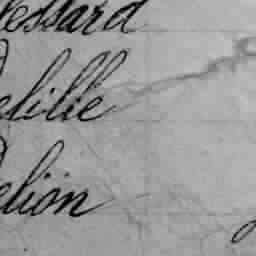 essard
elille
eliön